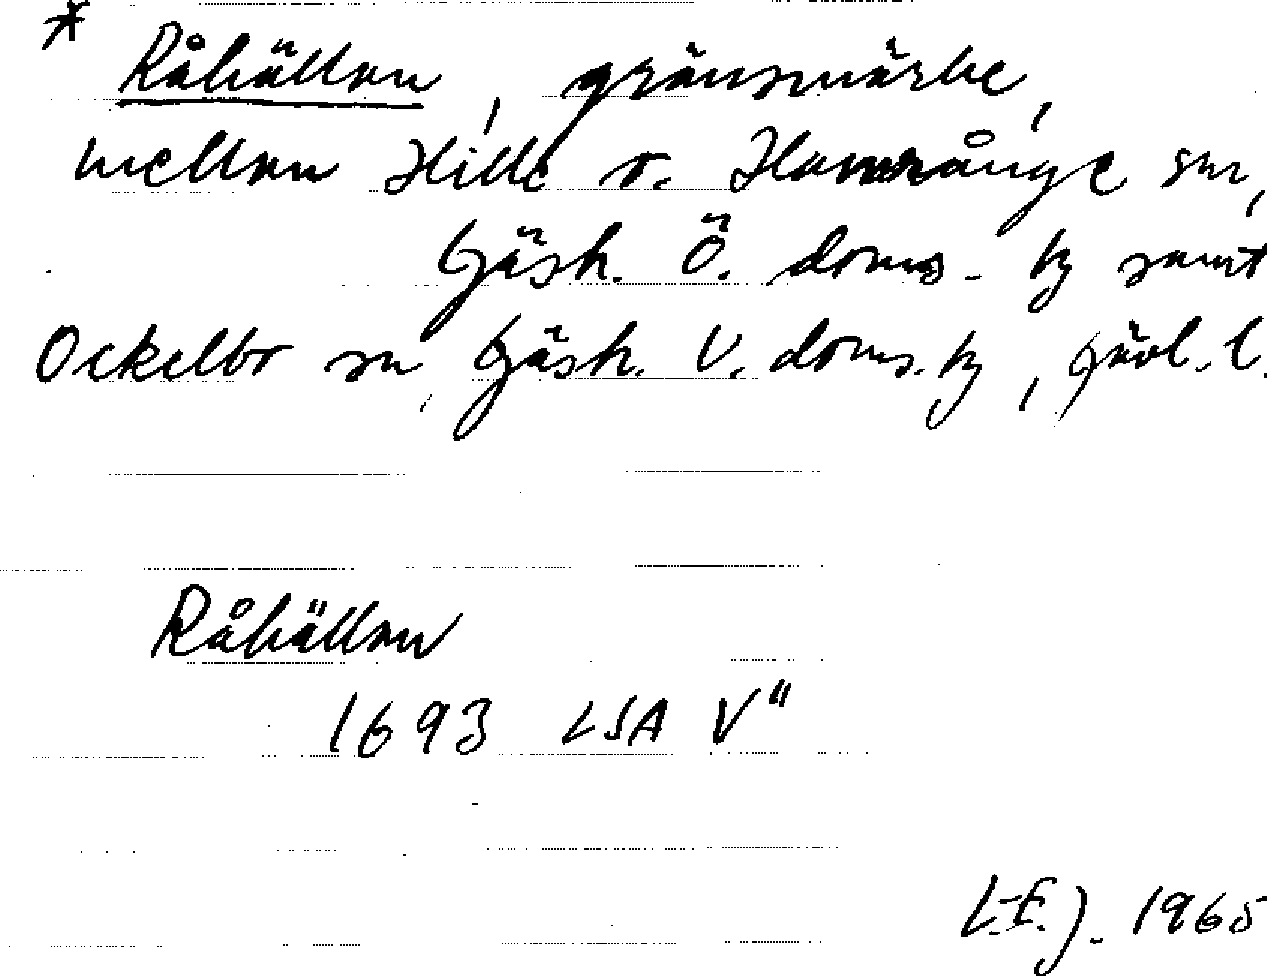 * Råhällan, gränsmärke,
mellan Hille o. Hamrånge snr,
Gästr. Ö. doms. tg samt
Ockelbo sn, Gästr. V. doms. tg, Gävl. l.
Råhällan
1693 LSA V"
L.E.J. 1965